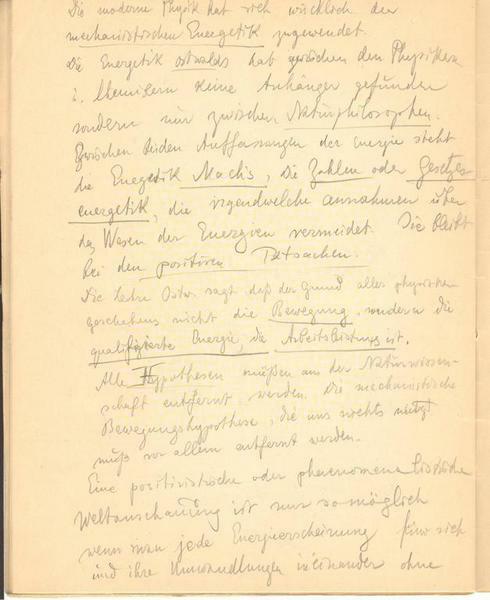 Die moderne Physik hat sich wirklich der
mechanistischen Energetik zugewendet.
Die Energetik Ostwalds hab zwischen den Physikern
u. Chemikern keine Anhänger gefunden
sondern nur zwischen Naturphilosophen.
Zwischen beiden Auffassungen der Energie steht
die Energetik Machs, die Zahlen oder Gesetzes-
energetik, die irgendwelche annahmen über
das Wesen der Energien vermeidet. Sie bleibt
bei den positiven Tatsachen.
Die Lehre Ostw. sagt daß der Grund alles physischen
geschehens nicht die Bewegung, sondern die
qualifizierte Energie, die Arbeitsleistung ist.
Alle Hypothesen müßen aus der Naturwissen-
schaft entfernt werden. Die mechanistische
Bewegungshypothese, die uns nichts nützt
muß vor allem entfernt werden.
Eine positivistische oder phaenomenalistische
Weltanschauung ist nur so möglich
wenn man jede Energierscheinung für sich
und ihre Umwandlungen ineinander ohne